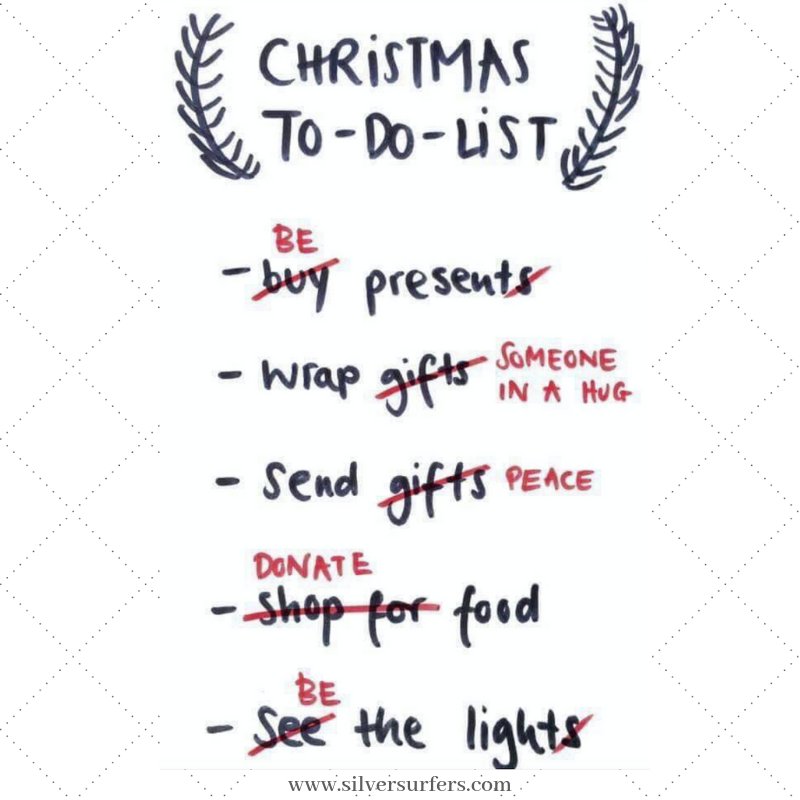 CHRiSTMAS
TO-DO-LiST
BE
- buy presents
- wrap gifts SOMEONE
IN A HUG
- send gifts PEACE
DONATE
- shop for food
BE
- see the lights
www.silversurfers.com